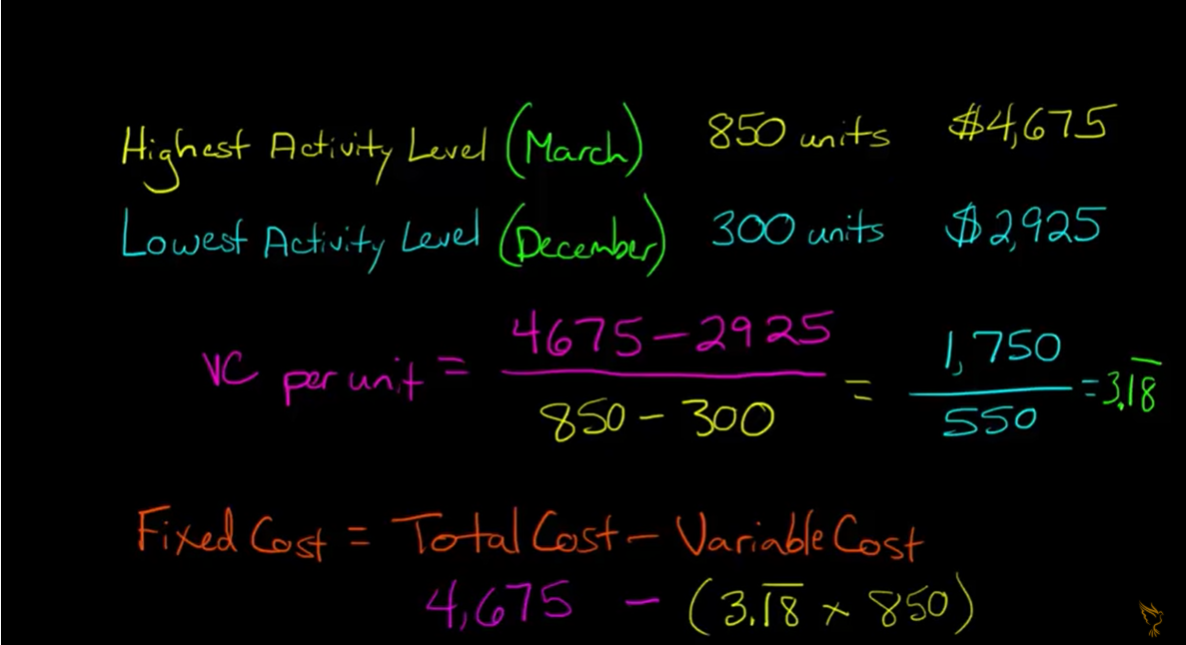 Highest Activity Level (March) 850 units $4,675
Lowest Activity Level (December) 300 units $2,925
VC per unit = 4675 - 2925 / 850 - 300 = 1,750 / 550 = 3.1̅8̅
Fixed Cost = Total Cost - Variable Cost
4,675 - (3.1̅8̅ × 850)